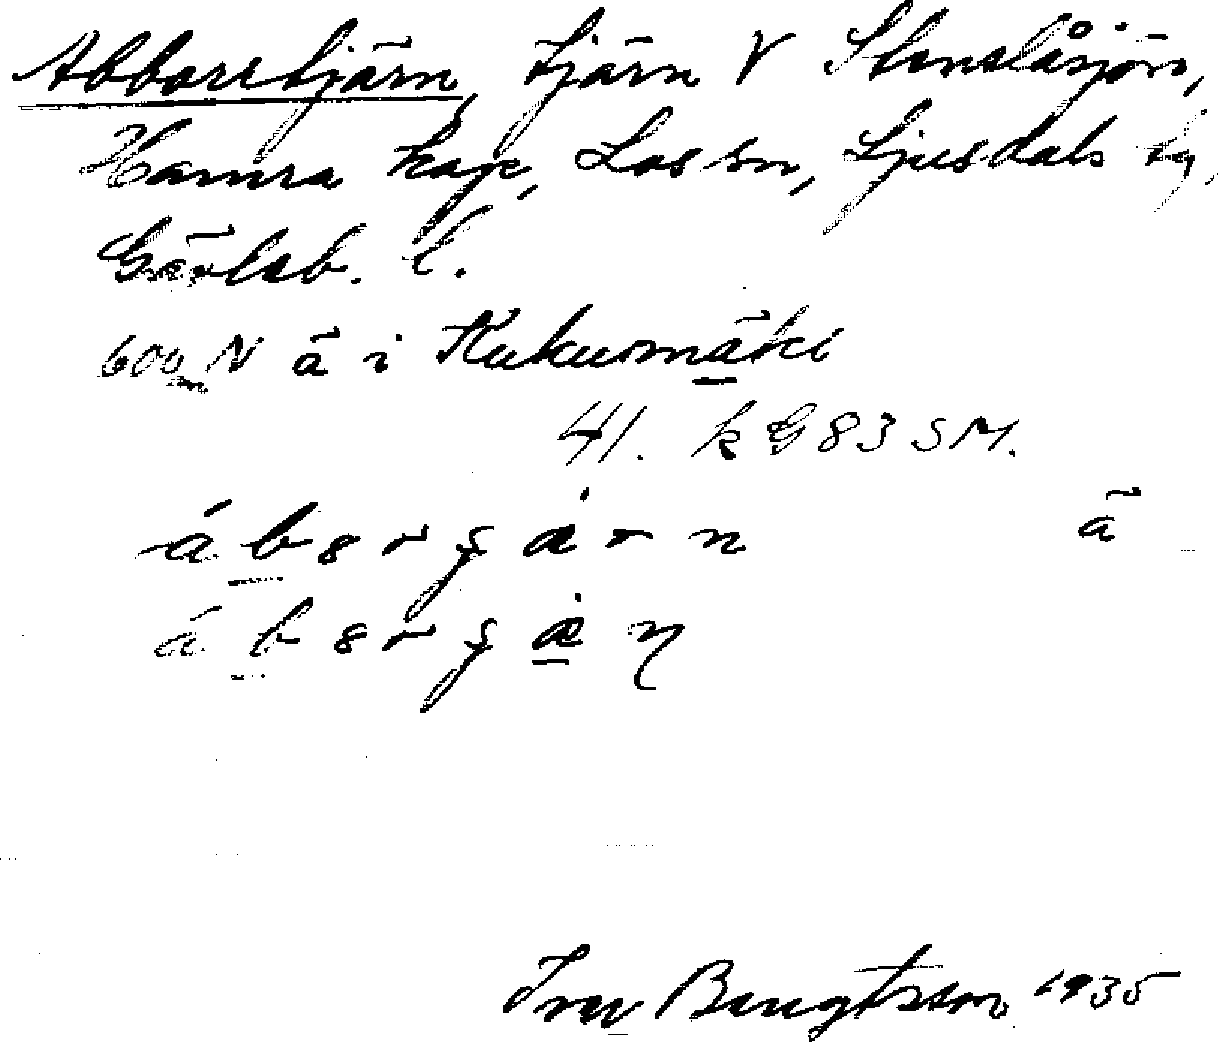 Abborrtjärn, tjärn V Stenslåsjön,
Hamra kap, Los sn, Ljusdals tg,
Gävleb. l.
600 m N ä i Kukuomäki
41. k G 83 SM.
ä
Ivar Bengtsson 1935